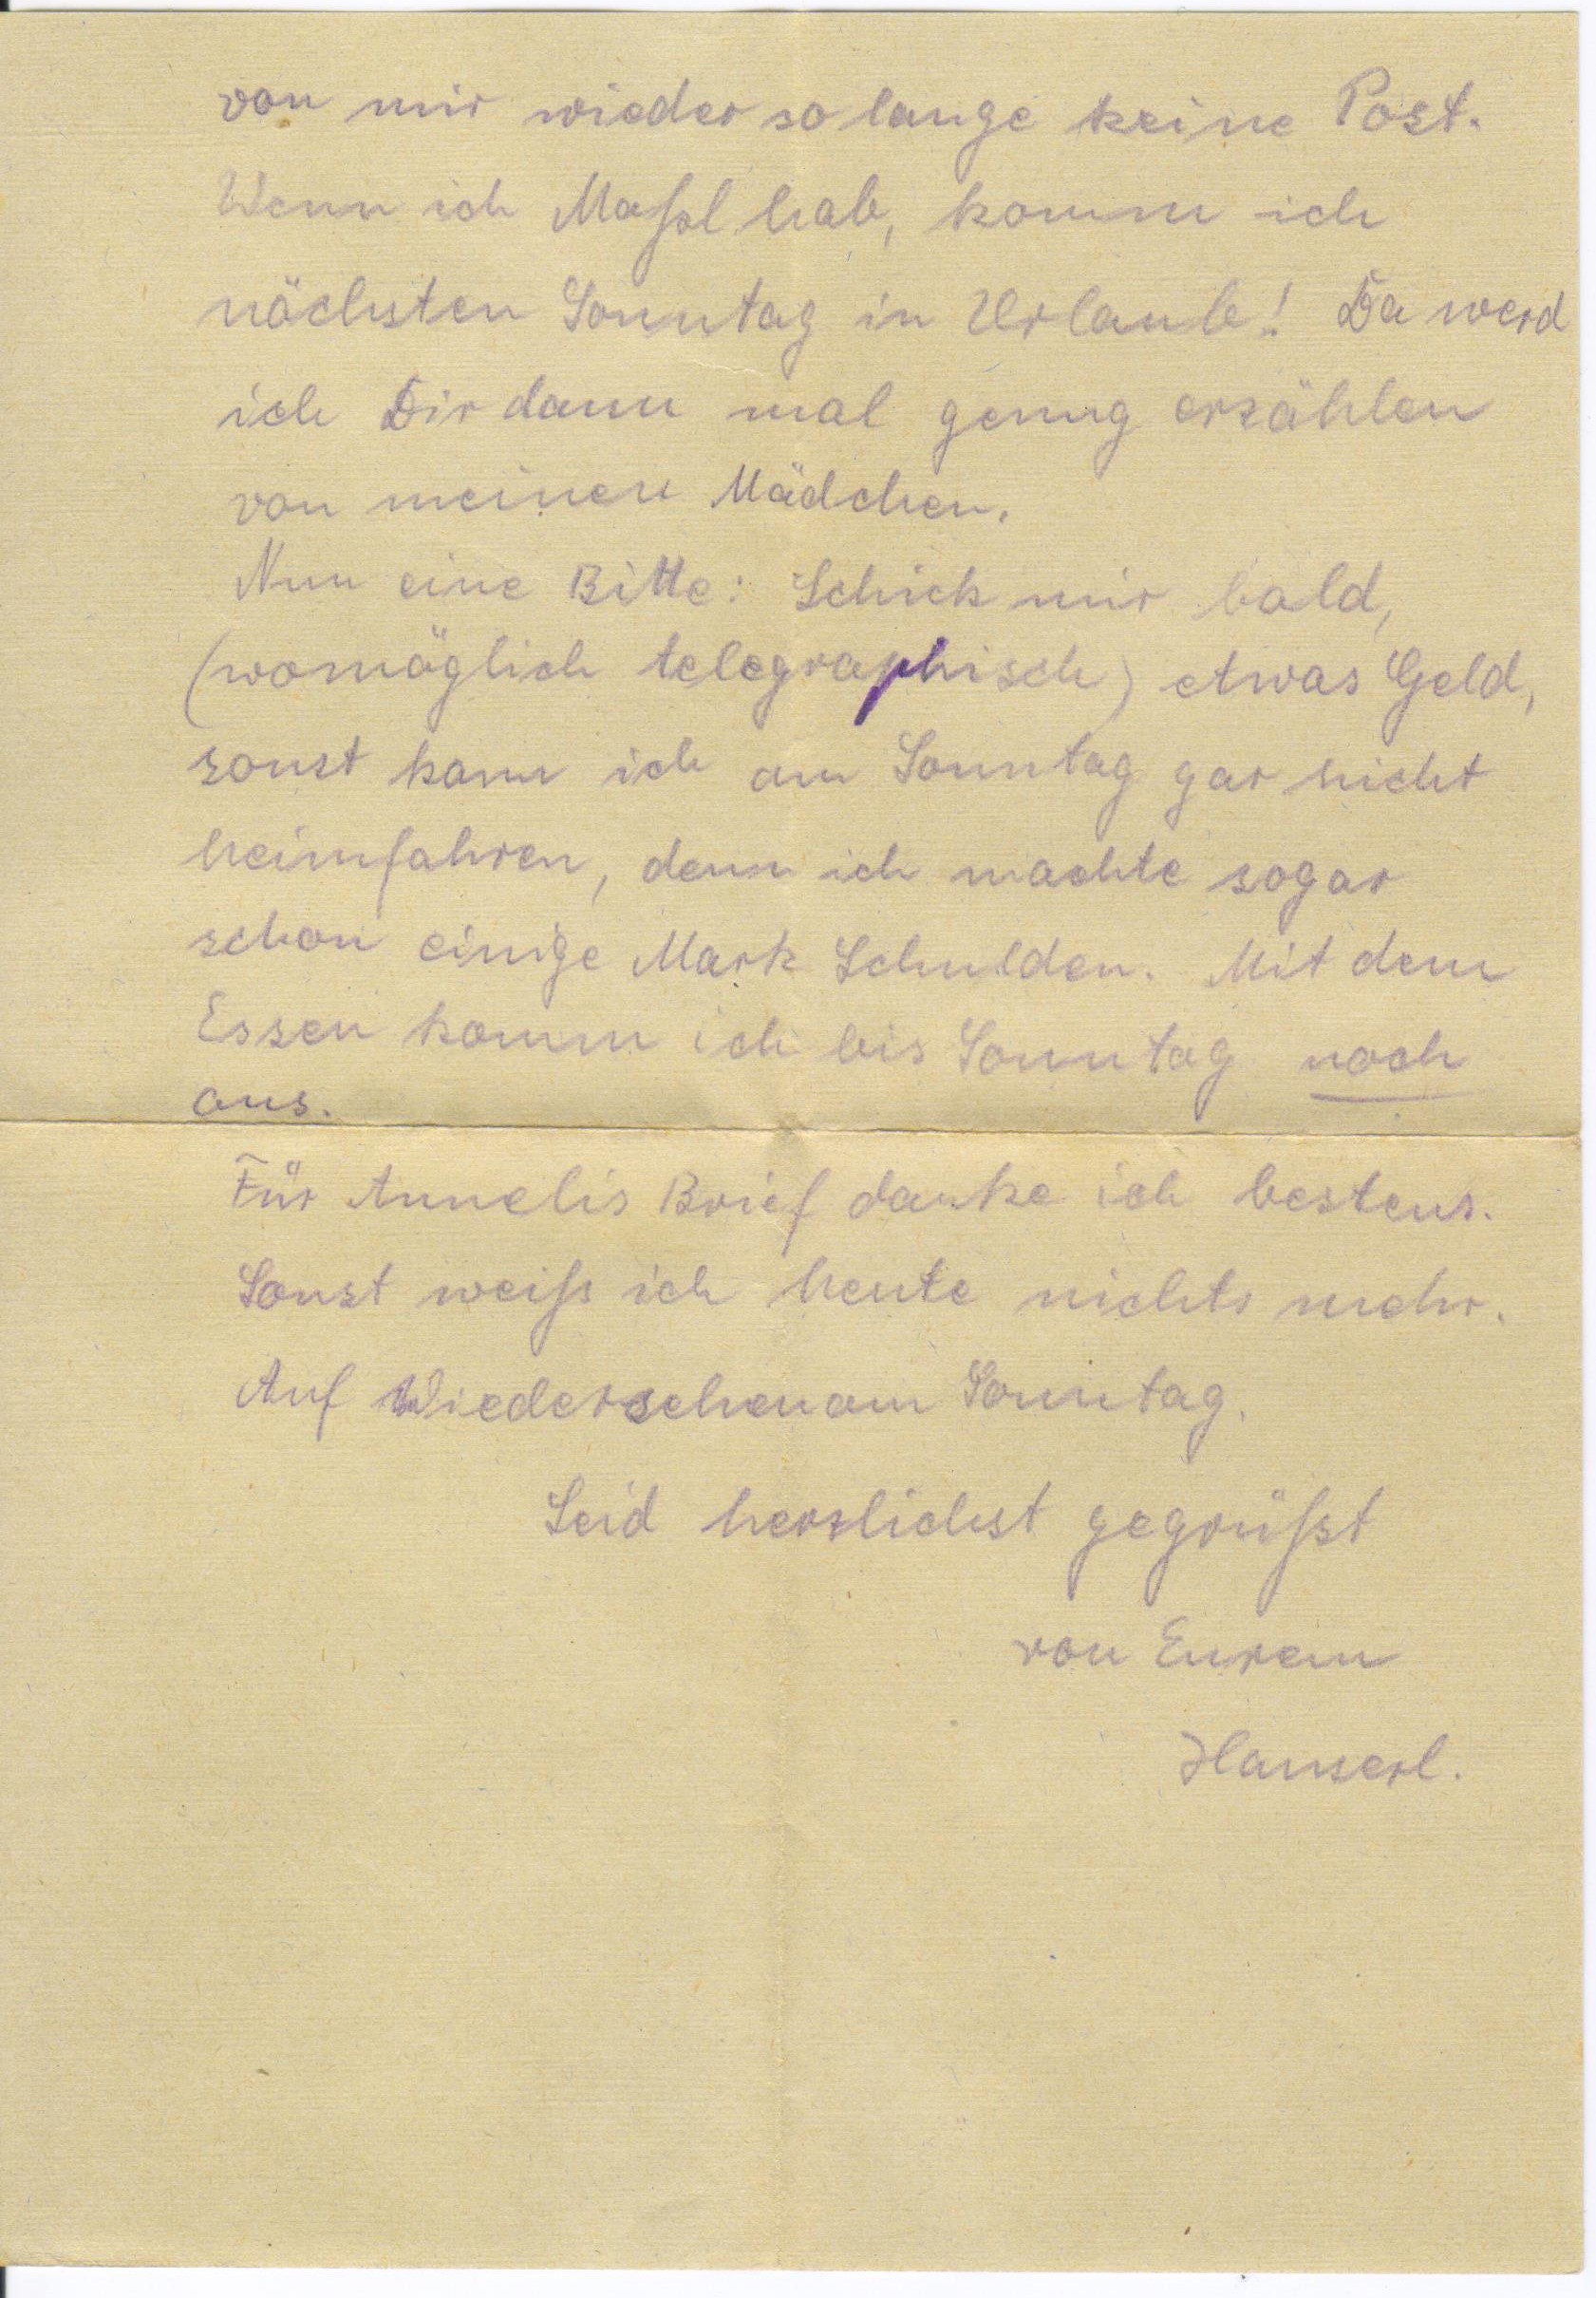 von mir wieder so lange keine Post.
Wenn ich Maßl hab, komm ich
nächsten Sonntag in Urlaub! Da werd
ich Dir dann mal genug erzählen
von meinen Mädchen.
Nun eine Bitte: Schick mir bald,
(womöglich telegraphisch) etwas Geld,
sonst kann ich am Sonntag gar nicht
heimfahren, denn ich machte sogar
schon einige Mark Schulden. Mit dem
Essen komm ich bis Sonntag noch
aus.
Für Annelis Brief danke ich bestens.
Sonst weiß ich heute nichts mehr.
Auf Wiedersehen am Sonntag.
Seid herzlichst gegrüßt
von Eurem
Hanserl.